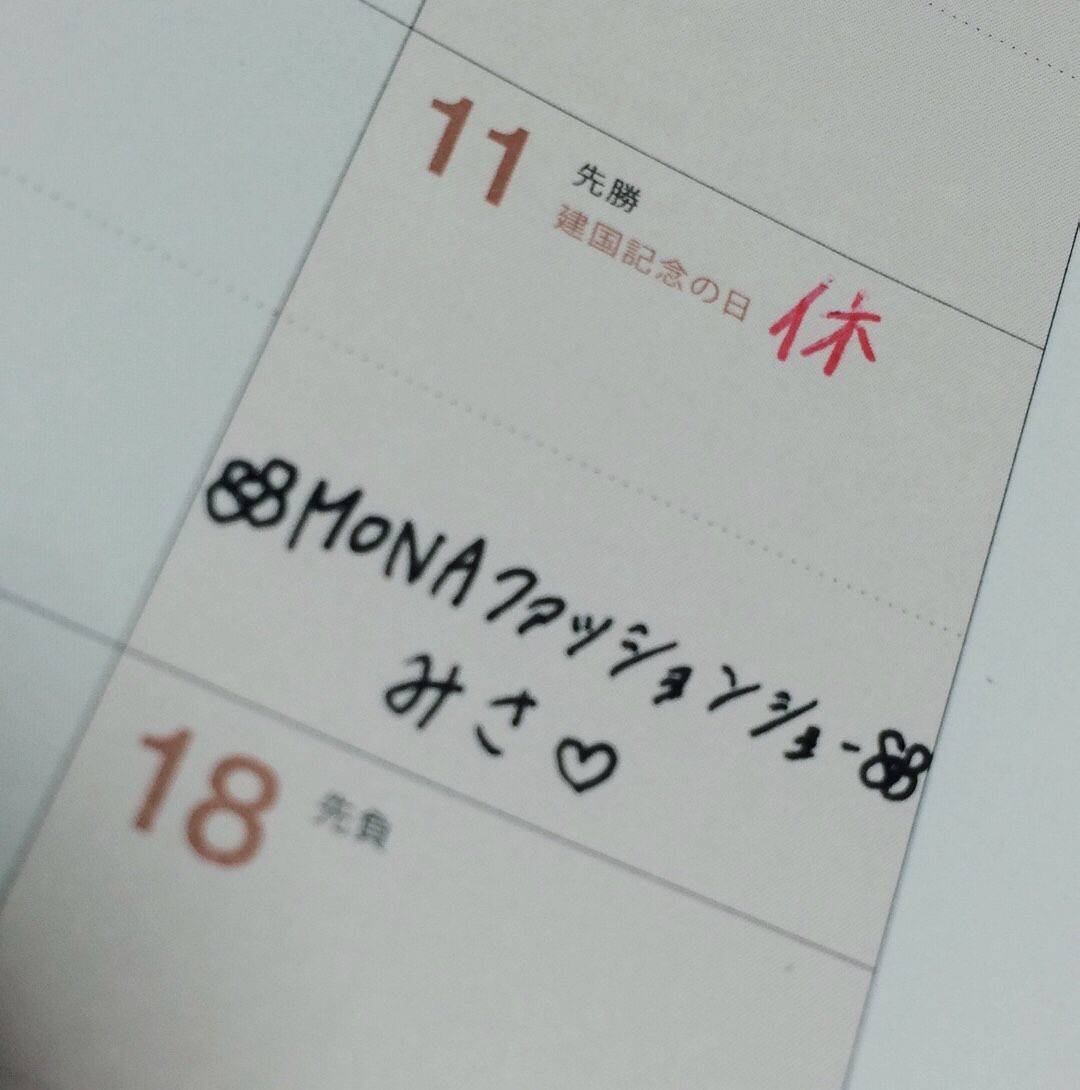 11 先勝
建国記念の日 休
MONAファッションショー
みさ♡
18 先負